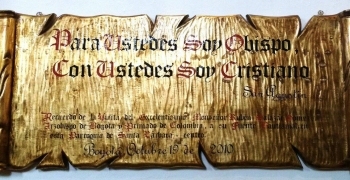 Para Ustedes Soy Obispo,
Con Ustedes Soy Cristiano
San Agustín
Recuerdo de la Visita de Excelentísimo Monseñor Rubén
Arzobispo de Bogotá y Primado de Colombia, a su
Parroquia de Santa Bárbara - Centro
Bogotá, Octubre 19 de 2010